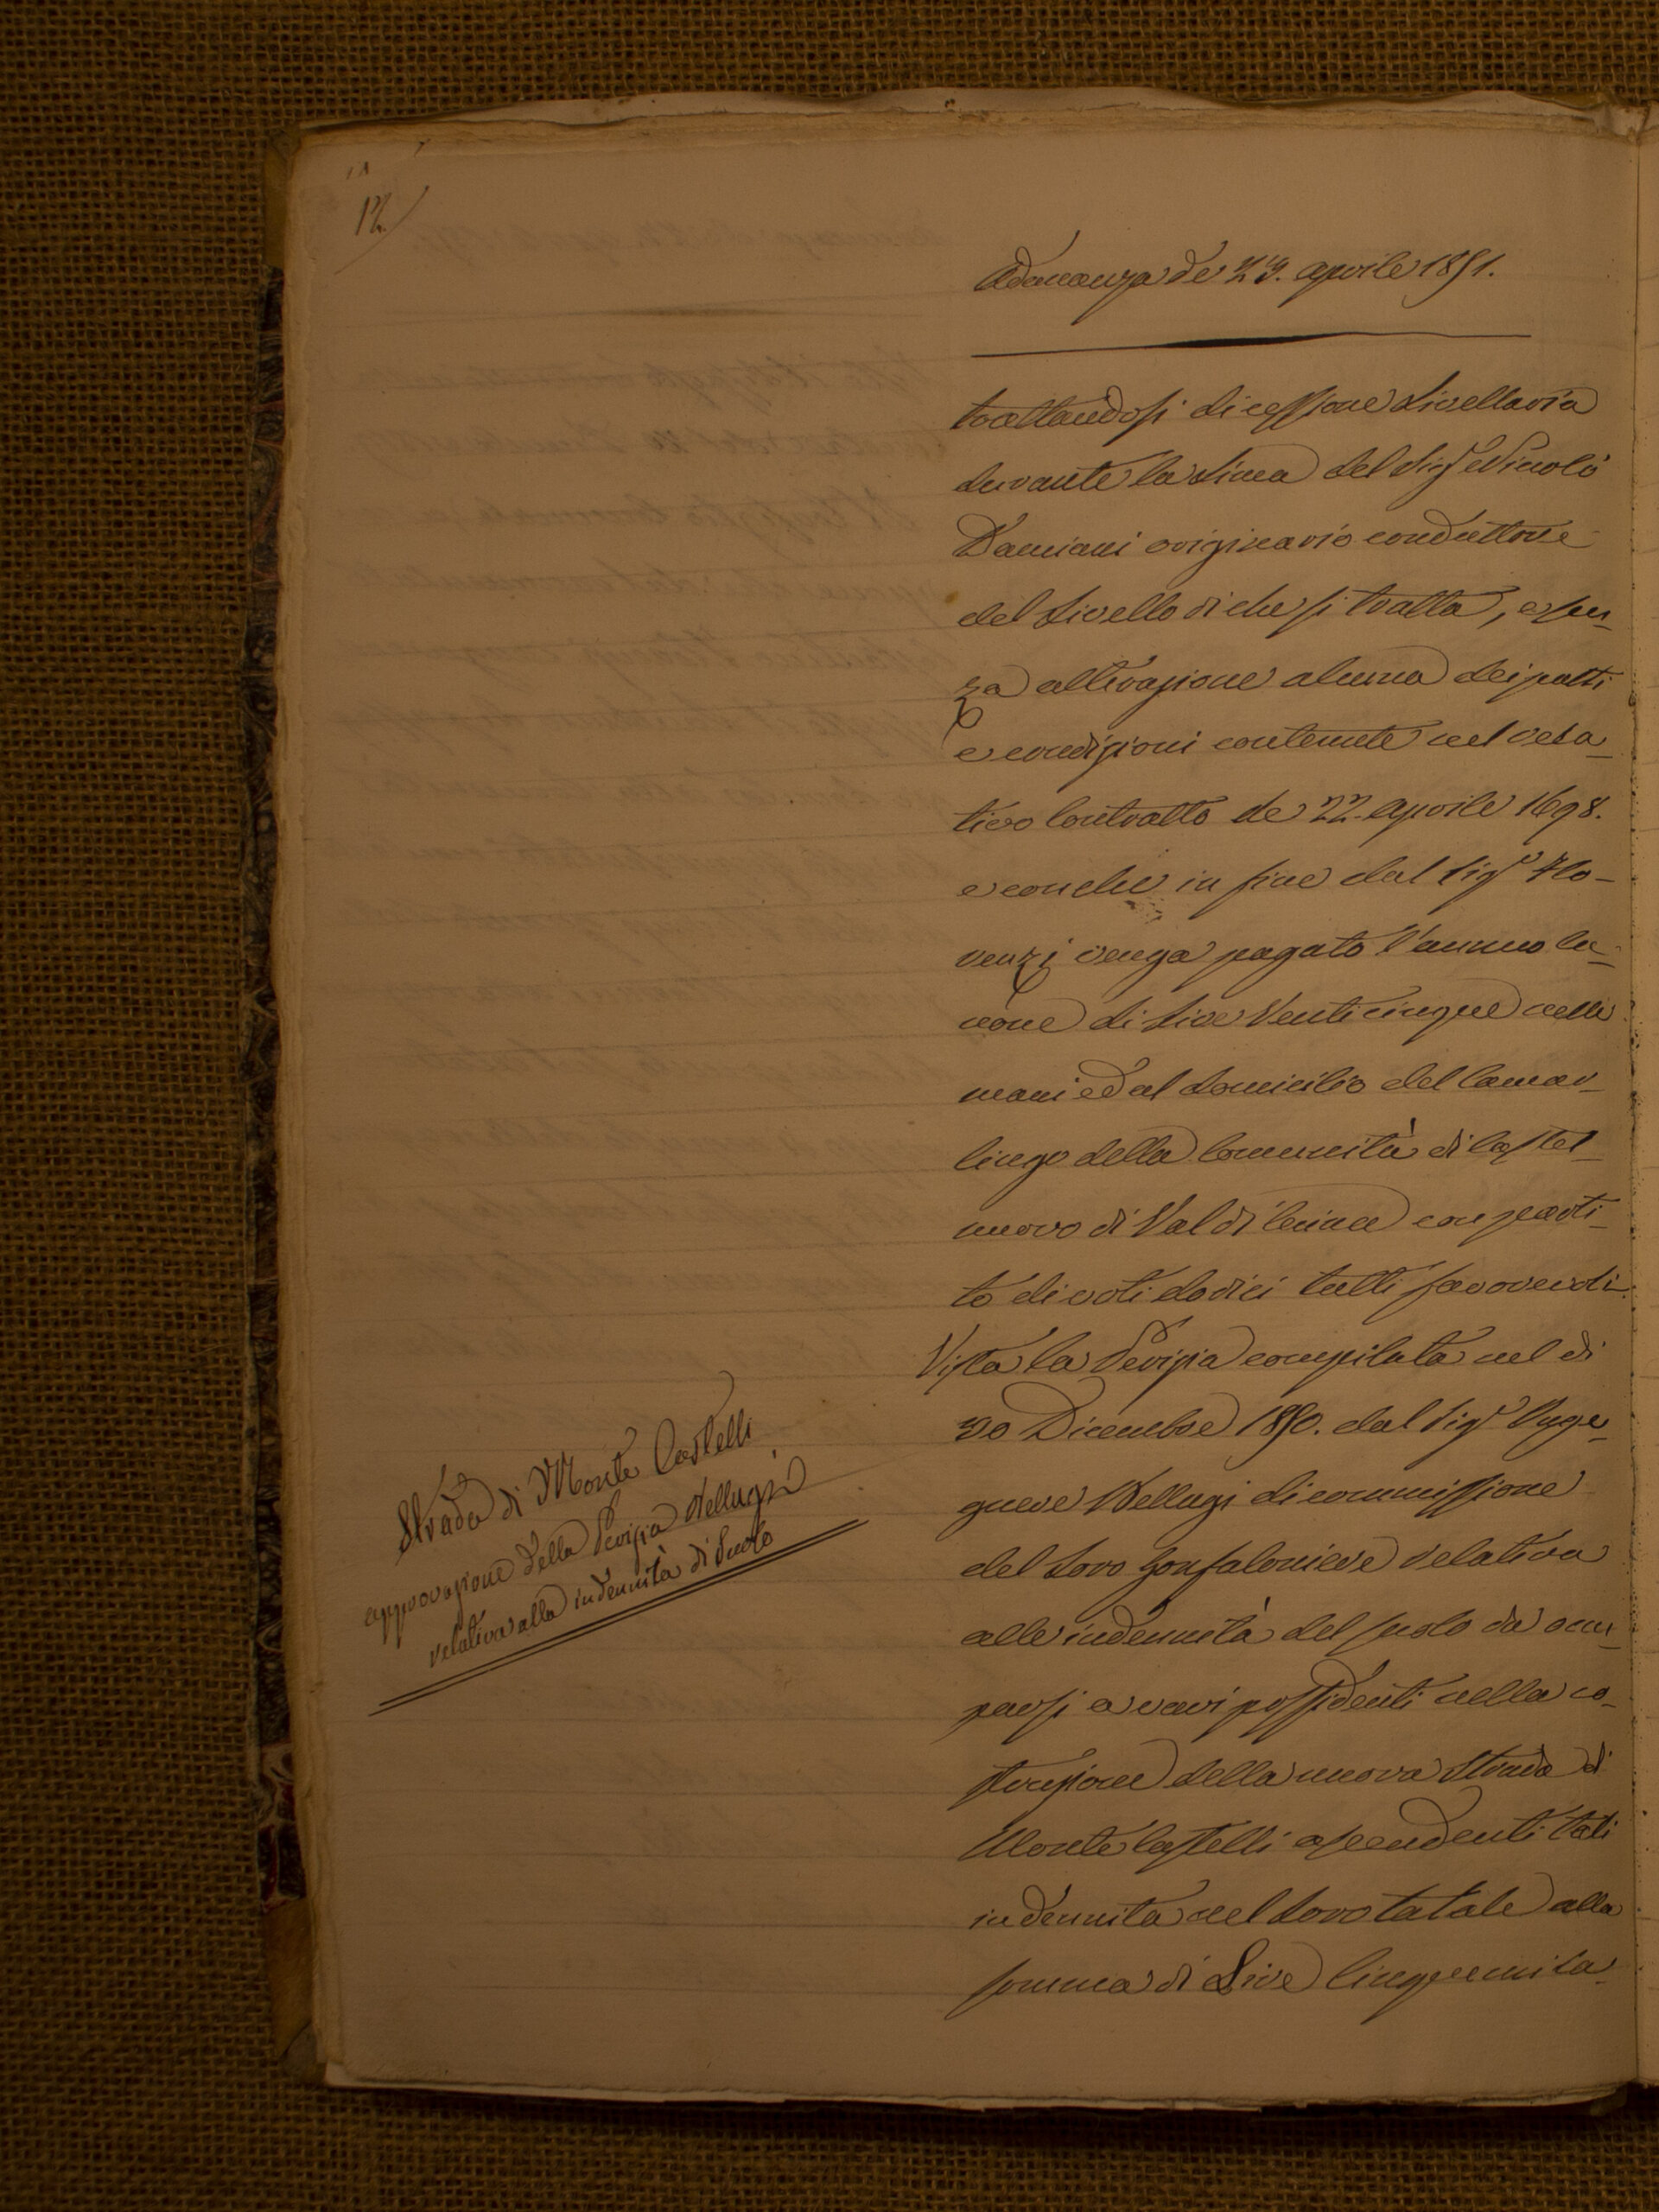 12.
Adunanza de' 23. Aprile 1851.
trattandosi di cessione Livellaria
durante la Linea del Sig.r Niccolò
Damiani originario conduttore
del Livello di che si tratta, e sen_
za alterazione alcuna dei patti
e condizioni contenute nel rela_
tivo Contratto de' 22. Aprile 1698.
e con che in fine dal Sig.r Flo_
renzi venga pagato l'annuo Ca_
none di Lire Venticinque nelle
mani ed al domicilio del Camar_
lingo della Comunità di Castel_
nuovo di Val di Cecina con parti_
to di voti dodici tutti favorevoli_
Vista la Perizia compilata nel di
30 Dicembre 1850. dal Sig.r Inge_
gnere Bellugi di commissione
del Loro Gonfaloniere relativa
alle indennità del suolo da occu_
parsi a varj possidenti nella co_
struzione della nuova Strada di
Monte Castelli ascendenti tali
indennità nel Loro totale alla
somma di Lire Cinquemila_
Strada di Monte Castelli
approvazione della Perizia Bellugi
relativa alla indennità di Suolo